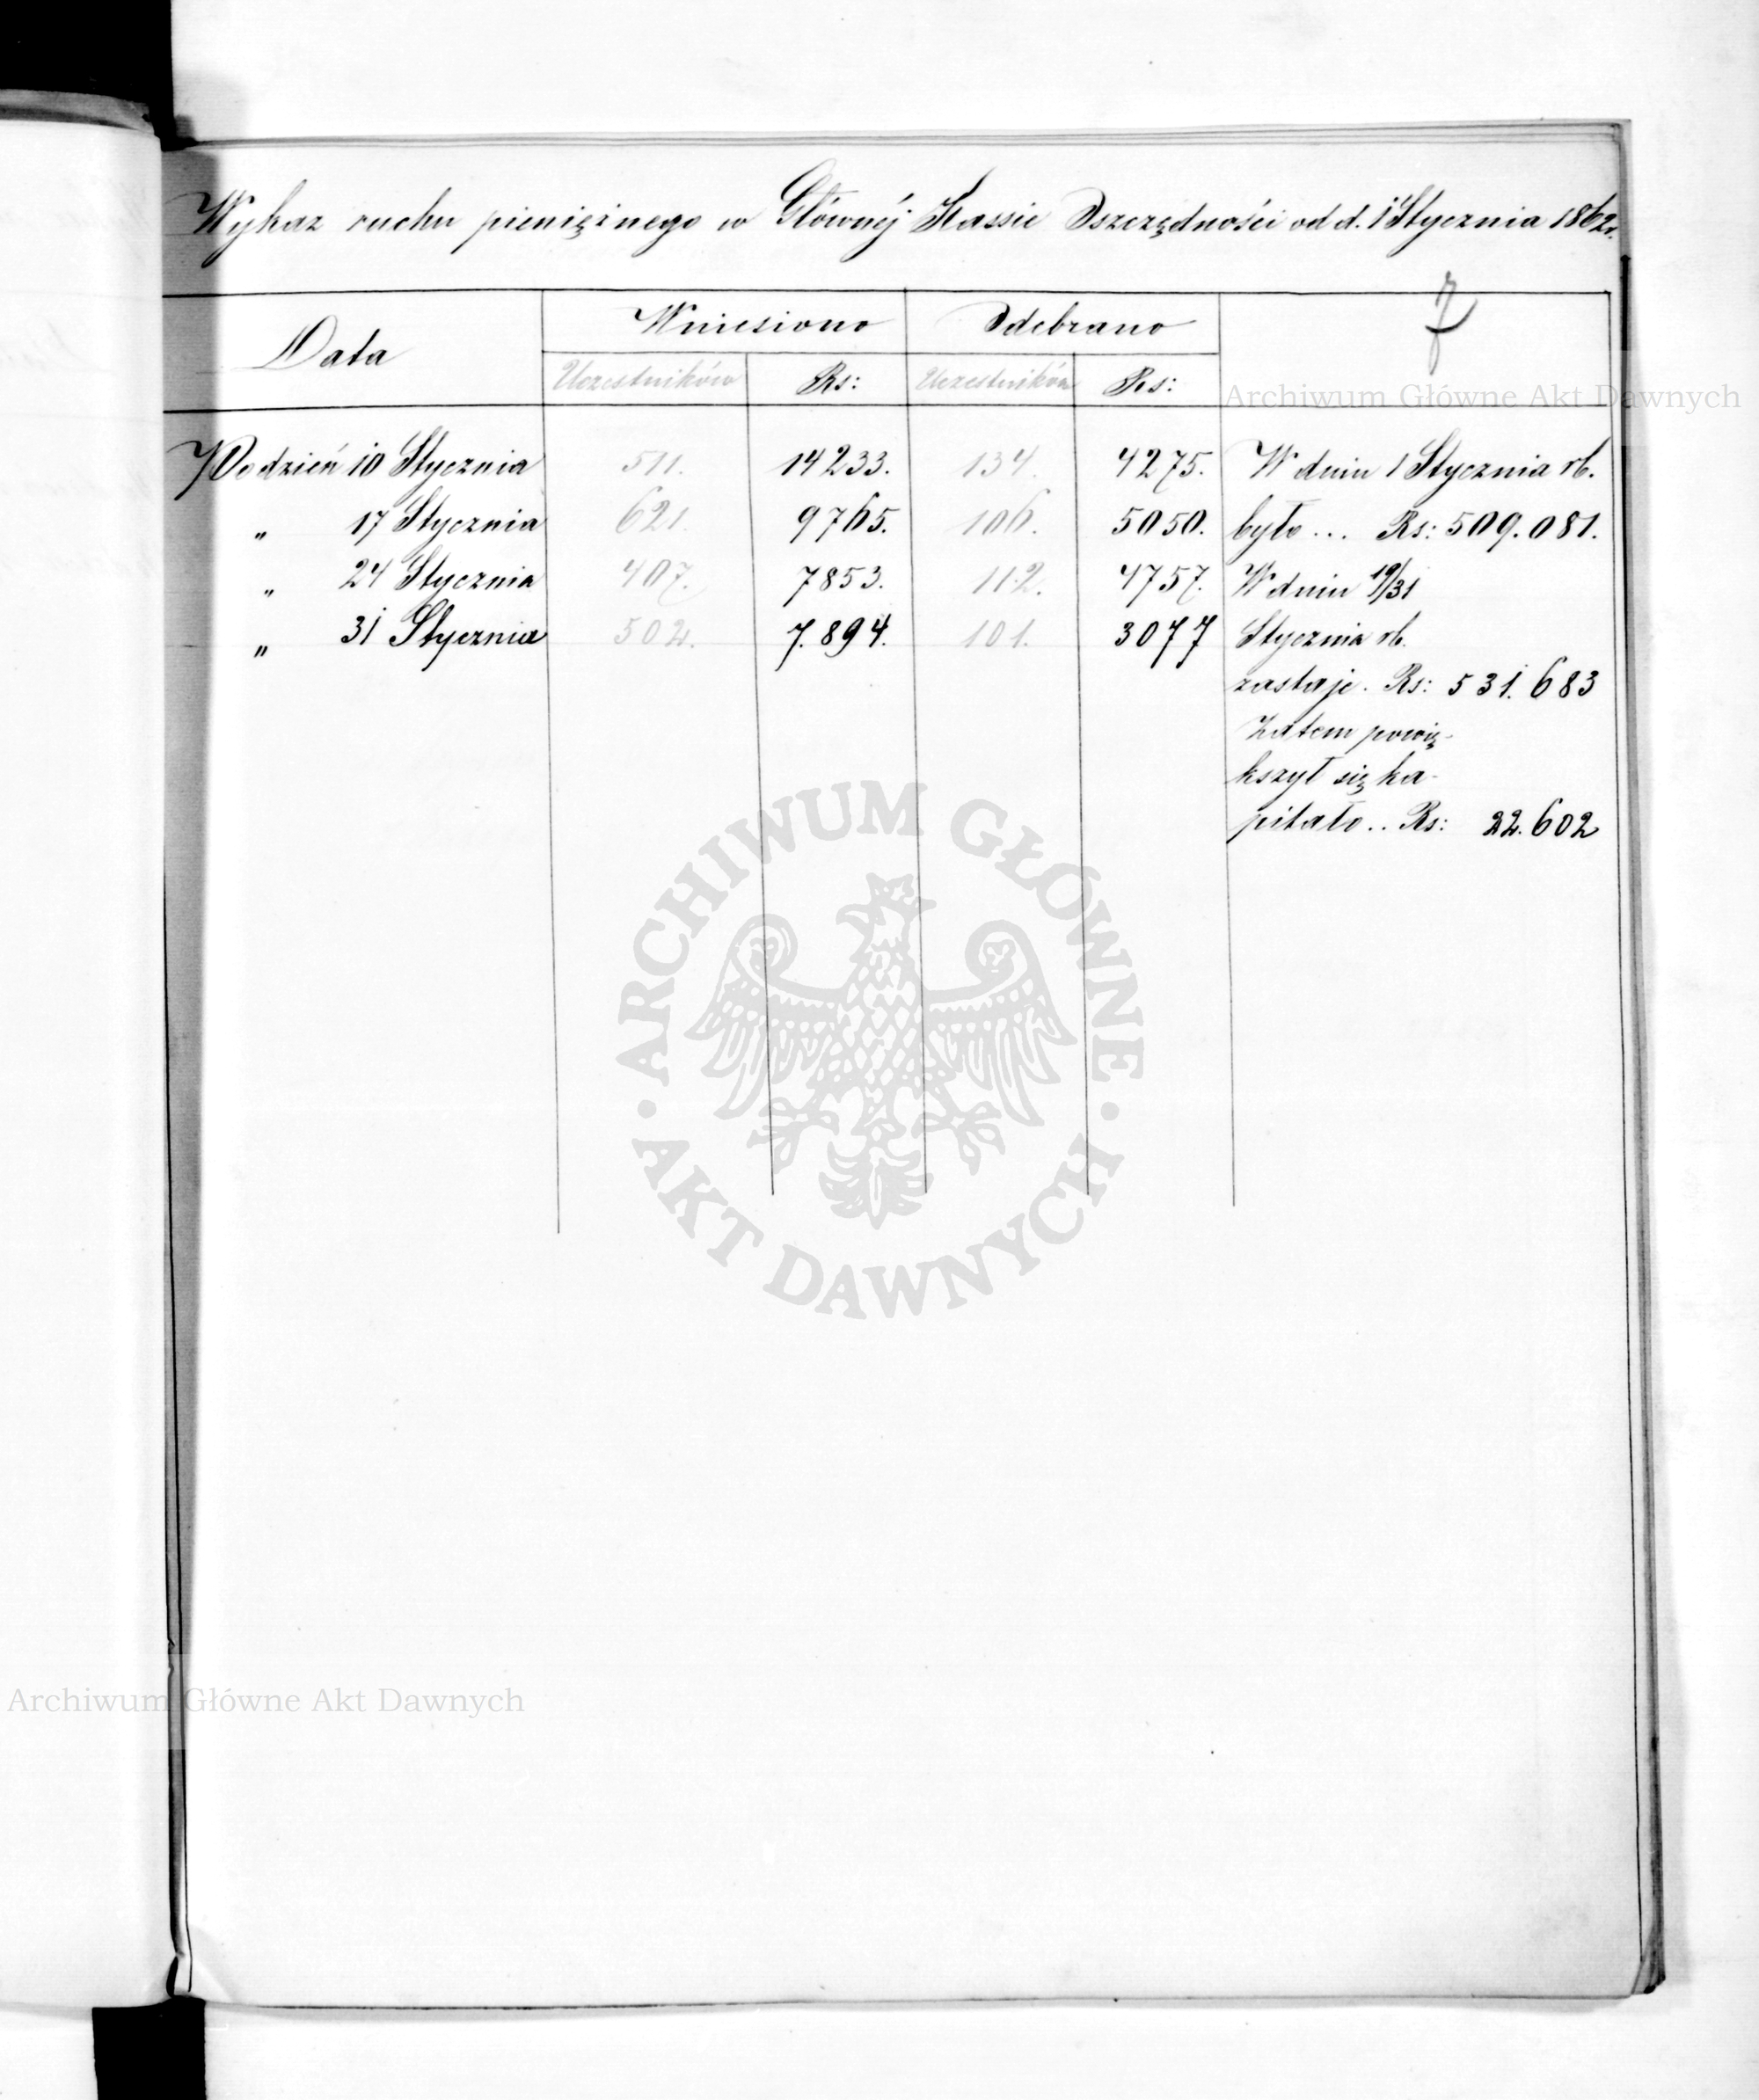 Wykaz ruchu pieniężnego w Głównéj Kassie Oszczędności od d. 1 Stycznia 1862 r.
7
Data Wniesiono Odebrano
Uczestników Rs: Uczestników Rs:
Archiwum Główne Akt Dawnych
Po dzień 10 Stycznia 511. 14233. 134. 4275. W dniu 1 Stycznia rb.
„ 17 Stycznia 621. 9765. 106. 5050. było ... Rs: 509.081.
„ 24 Stycznia 407. 7853. 112. 4757. W dniu 19/31
„ 31 Stycznia 502. 7.894. 101. 3077 Stycznia rb.
zastaje. Rs: 531.683
Zatem powię-
kszył się ka-
pitało .. Rs: 22.602
ARCHIWUM GŁÓWNE
· AKT DAWNYCH ·
Archiwum Główne Akt Dawnych